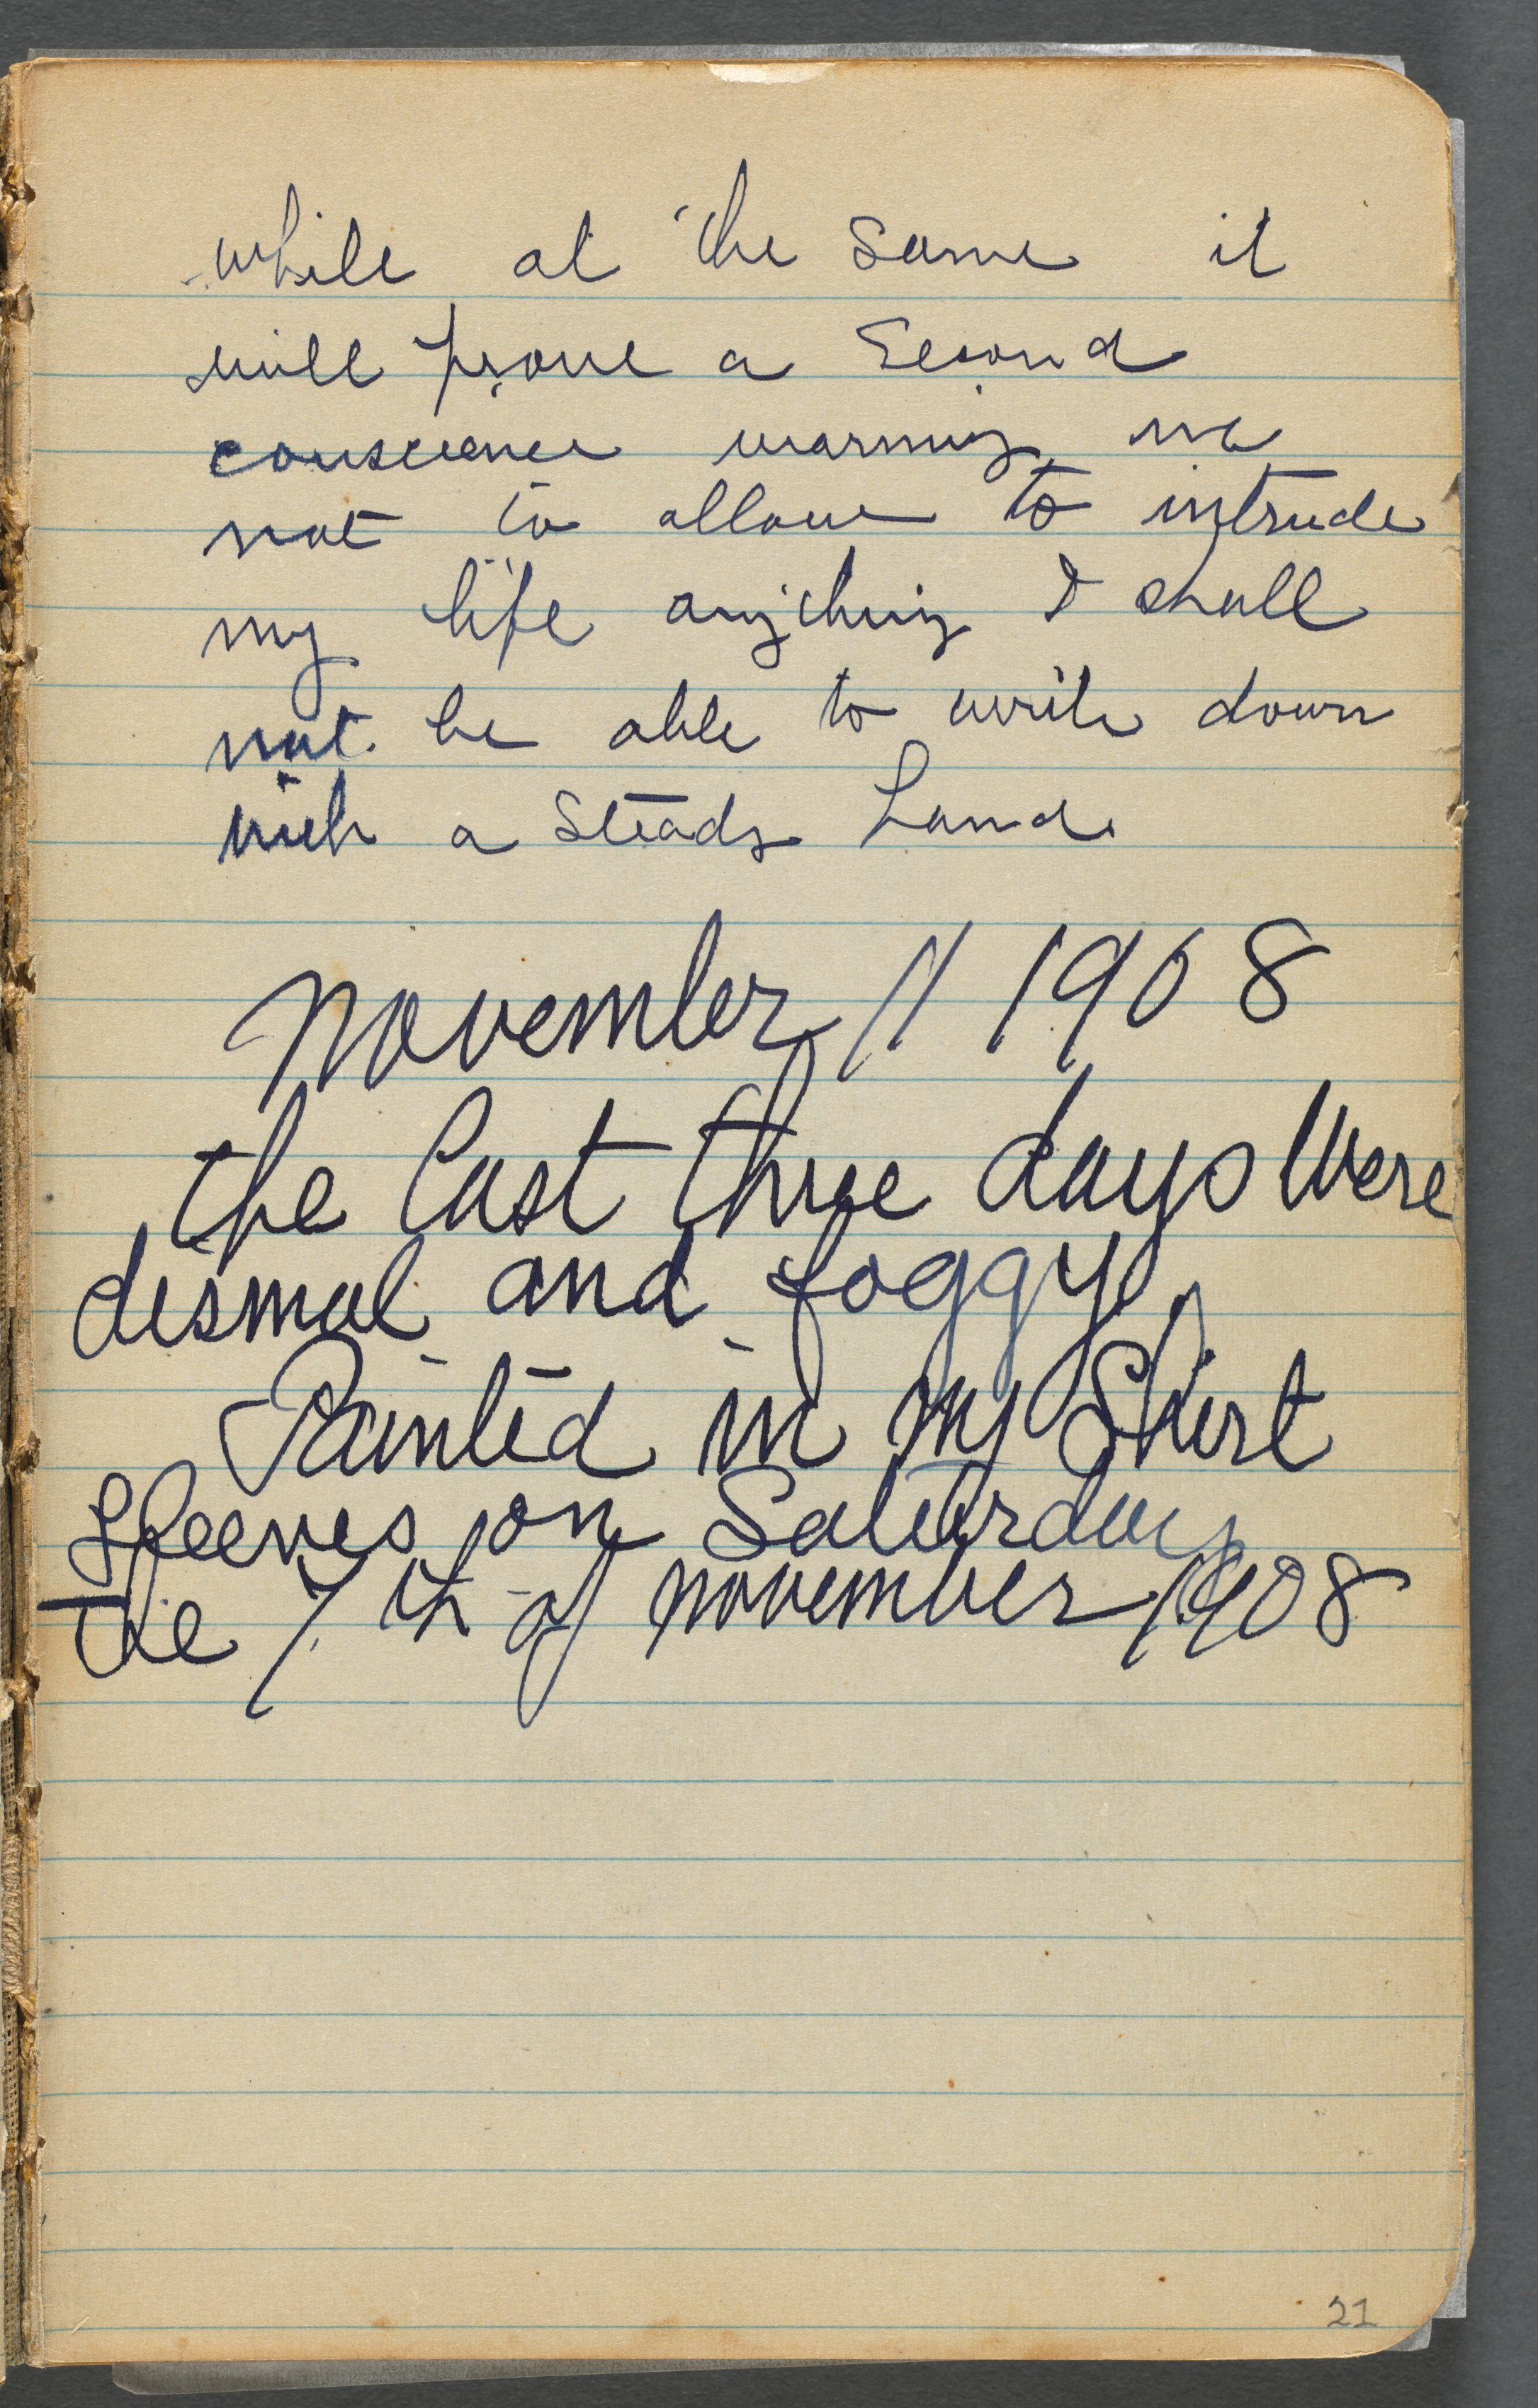 while at the same it
will prove a second
conscience warning me
not to allow to intrude
my life anything I shall
not be able to write down
with a steady hand
November 11 1908
the last three days were
dismal and foggy
Painted in my Shirt
Sleeves on Saturday
the 7th of november 1908
21